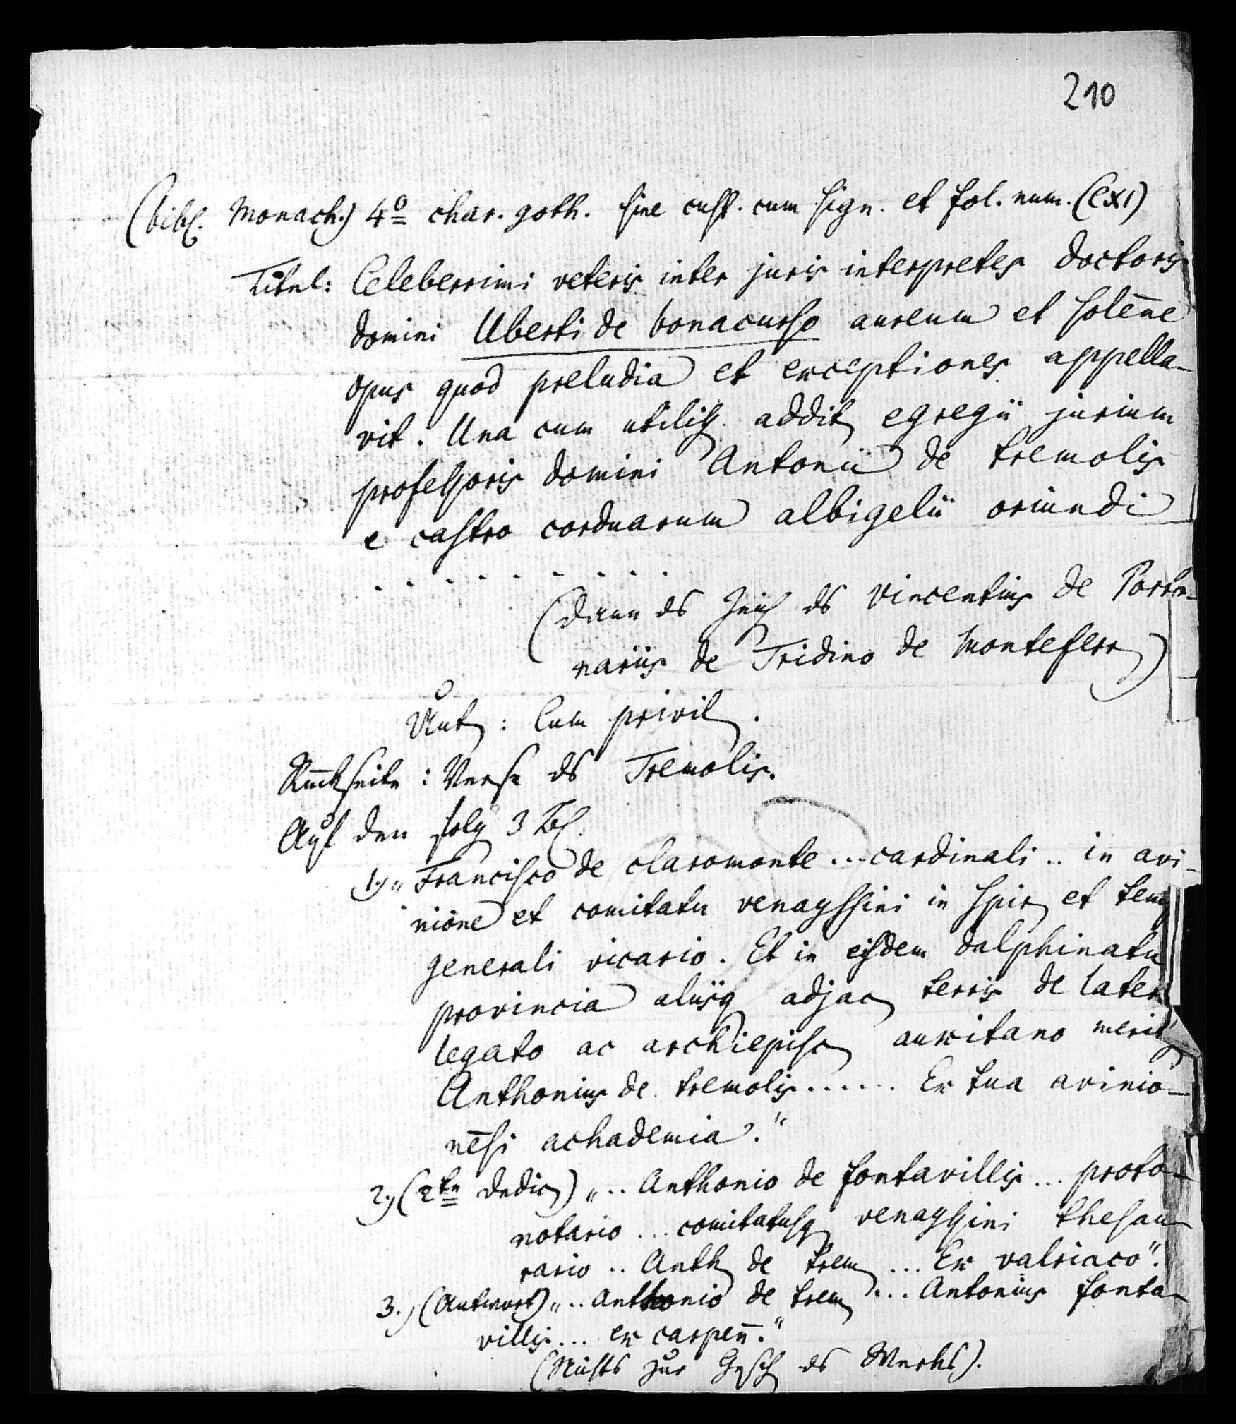 210
(bibl. Monach.) 4º char. goth. sine cust. cum sign. et fol. num. (CXI)
Titel: Celeberrimi veteris inter juris interpretes doctoris
domini Uberti de bonacurso aureum et solēne
opus quod preludia et exceptiones appella-
vit. Una cum utilis. addit. egregii jurium
professoris domini Antonii de tremolis
e castro corduarum albigesii oriundi
. . . . . . . . .
(dann das Zeich. des Vincentius de Porto-
nariis de Tridino de Monteferr.)
Unt. : Cum privil.
Rückseite : Verse des Tremolis.
Auf den folg. 3 Bl.
1., „Francisco de claromonte ... cardinali .. in avi-
nione et comitatu venayssini in spir. et tem.
generali vicario. Et in eisdem dalphinatu
provincia aliisq. adjac. terris de later.
legato ac archiepisc. auxitano merit.
Anthonius de tremolis ...... Ex tua avinio-
nēsi achademia."
2., (2te Dedic.) „.. Anthonio de fontavillis ... proto-
notario ... comitatusq. venayssini thesau-
rario .. Anth. de trem. ... Ex valriaco".
3., (Antwort) „.. Anthonio de trem. ... Antonius fonta-
villis ... ex carpen̄."
(Nichts zur Gesch. des Werks).